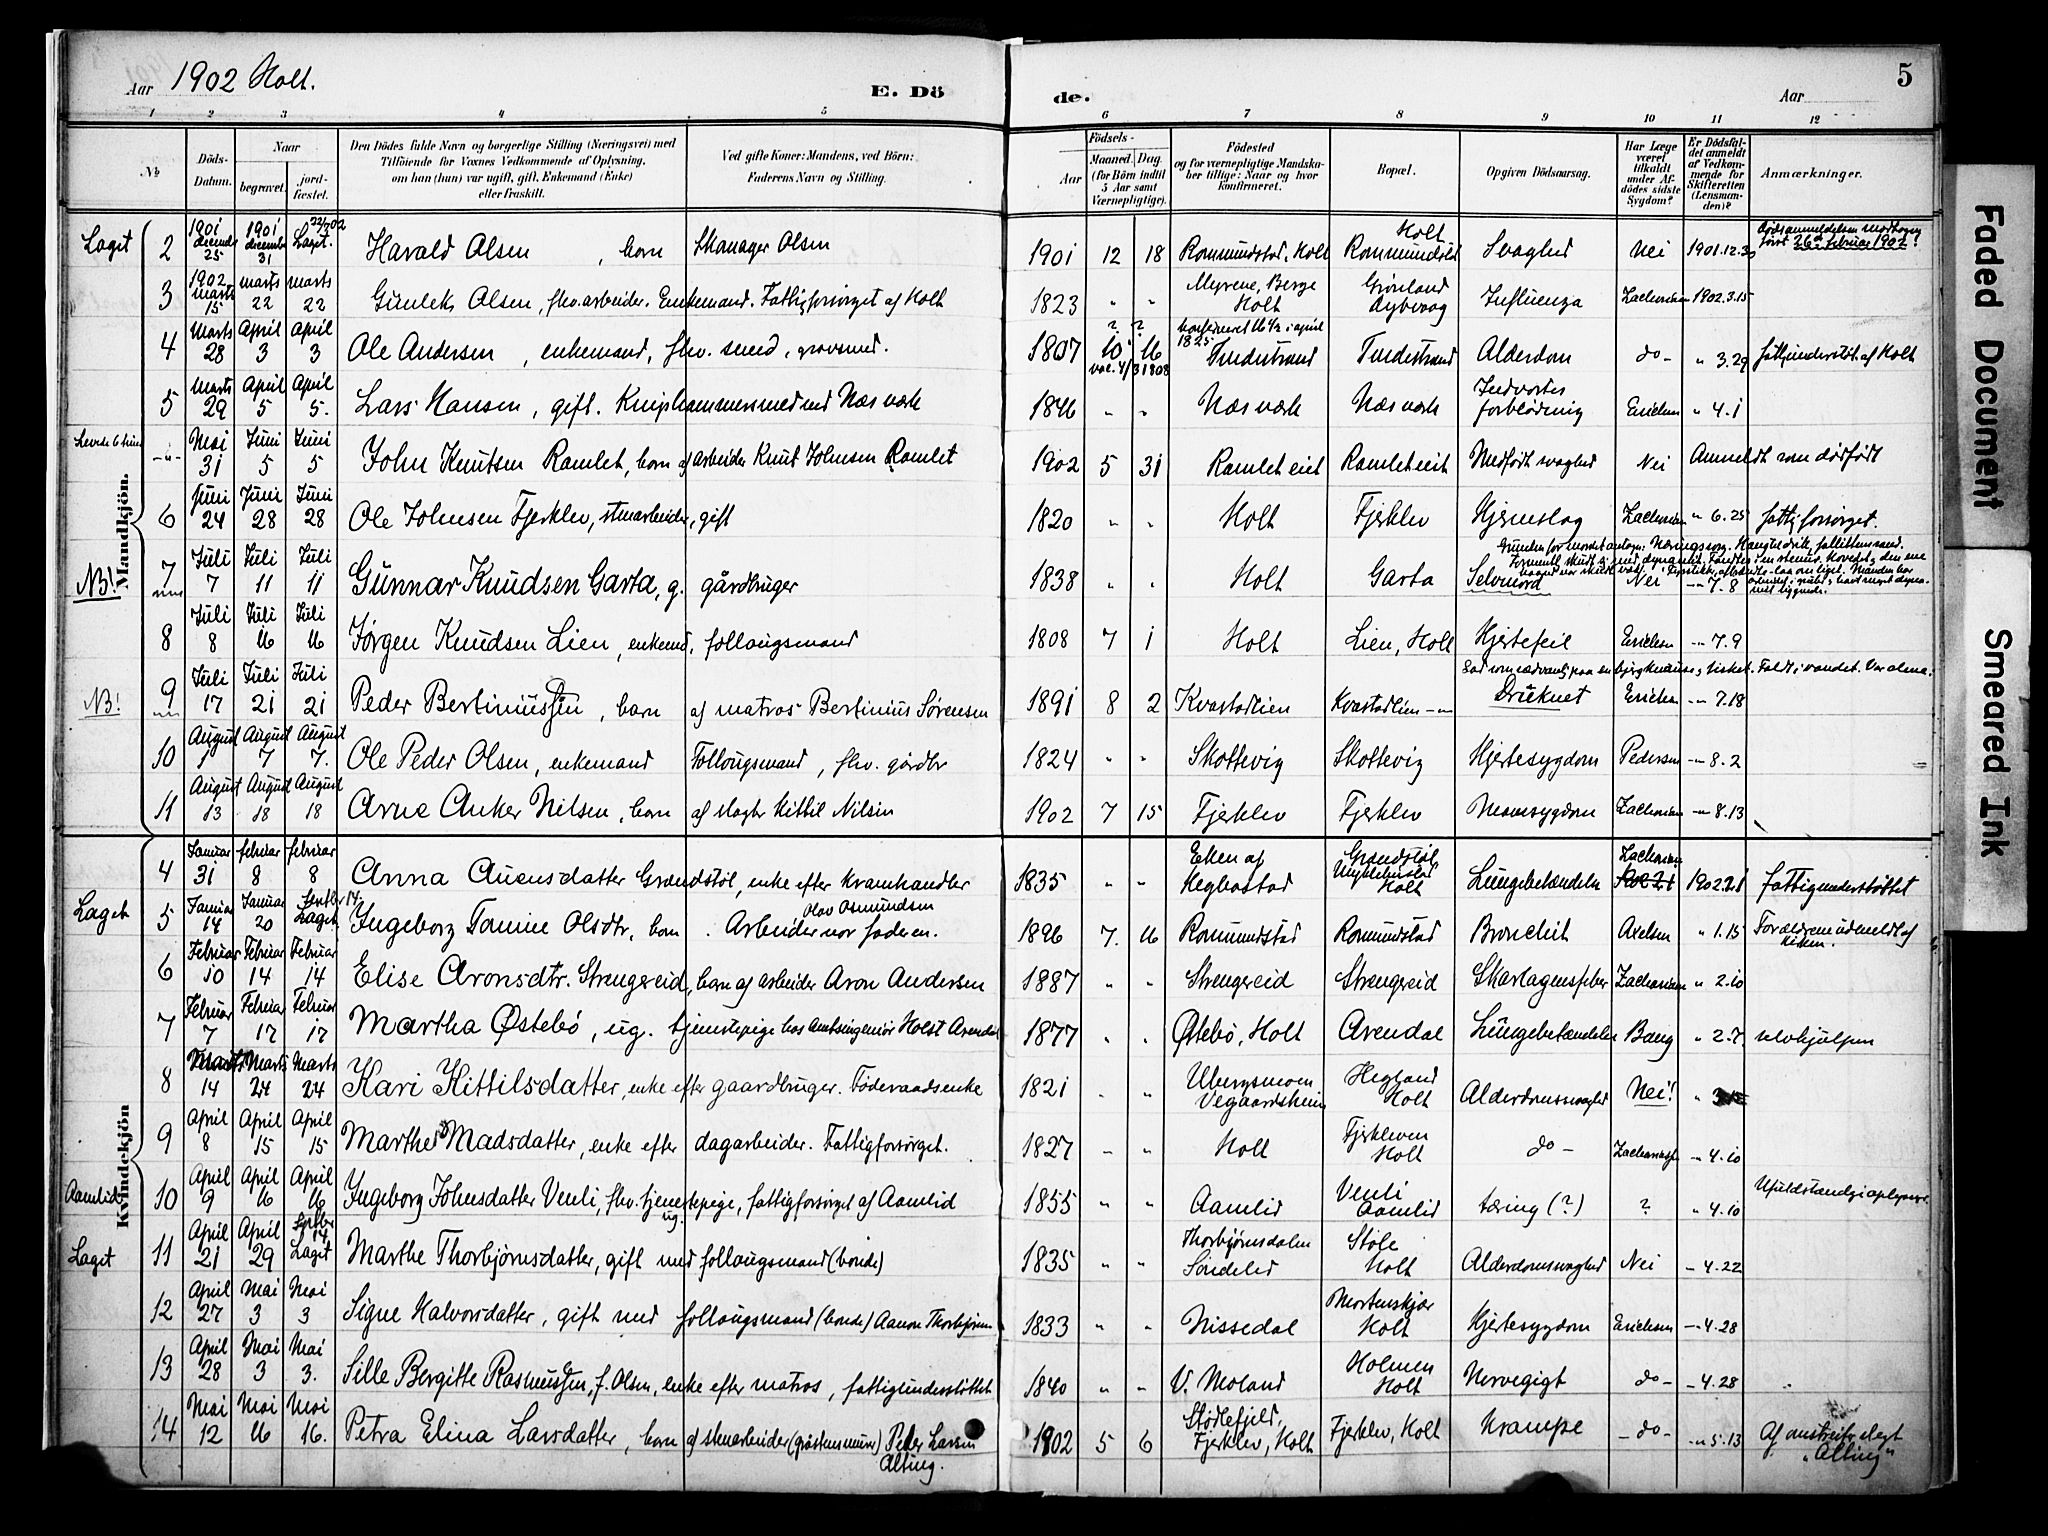 Aar 1902 Holt. E. Döde. Aar 5
1 2 3 4 5 6 7 8 9 10 11 12
No Döds-Datum. Naar begravet. jordfæstet. Den Dödes fulde Navn og borgerlige Stilling (Næringsvei) med Tilföiende for Voxnes Vedkommende af Oplysning, om han (hun) var ugift, gift, Enkemand (Enke) eller fraskilt. Ved gifte Koner: Mandens, ved Börn: Faderens Navn og Stilling. Födsels- Aar Maaned. Dag. (for Börn indtil 5 Aar samt Værnepligtige). Födested og for værnepligtige Mandskaber tillige: Naar og hvor konfirmeret. Bopæl. Opgiven Dödsaarsag. Har Læge været tilkaldt under Afdödes sidste Sygdom? Er Dödsfaldet anmeldt af Vedkommende for Skifteretten (Lensmanden)? Anmærkninger.
Mandkjön.
Laget 2 1901 decemb 25 1901 decemb 31 Laget. Harald Olsen, barn Olsen 1901 12 18 Rommundstad, Holt Rommundstad Holt Svaghed Nei 1901.12.30 Dødsanmeldelsen modtagen først 26de februar 1902!
3 1902 marts 15 marts 22 marts 22 Gunlek Olsen, fhv. arbeider. Enkemand. Fattigforsørget af Holt 1823 " " Myrene, Berge Holt Grønland Dybvaag Influenza Zachariasen 1902.3.15
4 Marts 28 April 3 April 3 Ole Andersen, enkemand, fhv. smed, grovsmed. 1807 10 16 ? ? vac. 4/3 1808 1825 Tvedestrand Tvedestrand Alderdom do - " 3.29 fattigunderstøt. af Holt
5 Marts 29 April 5 April 5. Lars Hansen, gift. Kniphammersmed ved Næs værk 1846 " " Næs værk Næs værk Indvortes forblødning Ericksen " 4.1
Levede 6 timer -"- Mai 31 Juni 5 Juni 5 John Knutsen Ramlet, barn af arbeider Knut Johnsen Ramlet 1902 5 31 Ramlet eiet Ramlet eiet Medfødt svaghed Nei Anmeldt som dødfødt
6 Juni 24 Juni 28 Juni 28 Ole Johnsen Fjerklev, stenarbeider, gift 1820 " " Holt Fjerklev Hjerneslag Zachariasen " 6.25 fattigforsørget.
NB! 7 Juli 7 Juli 11 Juli 11 Gunnar Knudsen Garta, g. gårdbruger 1838 " " Holt Garta Selvmord Nei -"- 7.8
8 Juli 8 Juli 16 Juli 16 Jørgen Knudsen Lien, enkemd. follaugsmand 1808 7 1 Holt Lien, Holt Hjertefeil Ericksen -"- 7.9
NB! 9 Juli 17 Juli 21 Juli 21 Peder Bertinussen, barn af matros Bertinius Sørensen 1891 8 2 Kvastadlien Kvastadlien -"- Druknet Ericksen -"- 7.18 Sad som sædvanlig paa en bjergknaus, fisket. Faldt i vandet. Var alene.
10 August 1 August 7 August 7. Ole Peder Olsen, enkemand Follougsmand, fhv. gårdbr 1824 " " Skottevig Skottevig Hjertesygdom Pedersen -"- 8.2
11 August 13 August 18 August 18 Arne Anker Nilsen, barn af slagter Kittil Nilsen 1902 7 15 Fjerklev Fjerklev Mavesygdom Zachariasen -"- 8.13
Kvindekjön
4 Januar 31 februar 8 februar 8 Anna Auensdatter Grændstøl, enke efter Kramhandler 1835 " " Eken af Hegbostad Grændstøl Holt Lungebetændelse Zachariasen 1902.2.1 fattigunderstøttet
Laget 5 Januar 14 Januar 20 Septbr 14. Laget. Ingeborg Tomine Olsdtr, barn. Arbeider Olav Osmundsen var faderen. 1896 7. 16 Rommundstad Rommundstad Bronchit Axelsen " 1.15 Forældrene udmeldt af kirken.
6 Februar 10 Februar 14 Februar 14 Elise Aronsdtr. Strengereid, barn af arbeider Aron Andersen 1887 " " Strengereid Strengereid Skarlagensfeber Zachariasen " 2.10
7 Februar 7 Februar 17 Februar 17 Martha Østebø, ug. tjenestepige hos Amtsingeniør Holst Arendal 1877 " " Østebø, Holt Arendal Lungebetændelse Bang " 2.7. selvhjulpen
8 14 Marts 24 Marts 24 Kari Kittilsdatter, enke efter gaardbruger. Føderaadsenke 1821 " " Ubergsmoen Vegaardsheien Hegland Holt Alderdomssvaghed Nei! "
9 April 8 April 15 April 15 Marthe Madsdatter, enke efter dagarbeider. Fattigforsørget. 1827 " " Holt Fjerkleven Holt do - Zachariasen -"- 4.10
Aamlid 10 April 9 April 16 April 16 Ingeborg Johnsdatter Venli, fhv. tjenestepige, ug. fattigforsørget af Aamlid 1855 " " Aamlid Venli Aamlid tæring (?) ? " 4.10 Ufuldstændige oplysnger.
Laget 11 April 21 April 29 Septbr 14 Laget Marthe Thorbjørnsdatter, gift med follougsmand (bonde) 1835 " " Thorbjørnsdalen Søndeled Støle Holt Alderdomssvaghed Nei - 4.22
12 April 27 Mai 3 Mai 3 Signe Halvorsdatter, gift med follougsmand (bonde) Aanon Thorbjørns 1833 " " Nissedal Mortenskjær Holt Hjertesygdom Ericksen -"- 4.28
13 April 28 Mai 3 Mai 3. Sille Bergitte Rasmussen, f. Olsen, enke efter matros, fattigunderstøttet 1840 " " V. Moland Holmen Holt Nervegigt do - - 4.28
14 Mai 12 Mai 16 Mai 16. Petra Elina Larsdatter, barn af stenarbeider (gråstensmurer) Peder Larsen Alting. 1902 5 6 Stødlefjeld, Fjerklev, Holt Fjerklev, Holt Krampe - do - -"- 5.13 Af slegt "Alting"
Faded Document
Smeared Ink